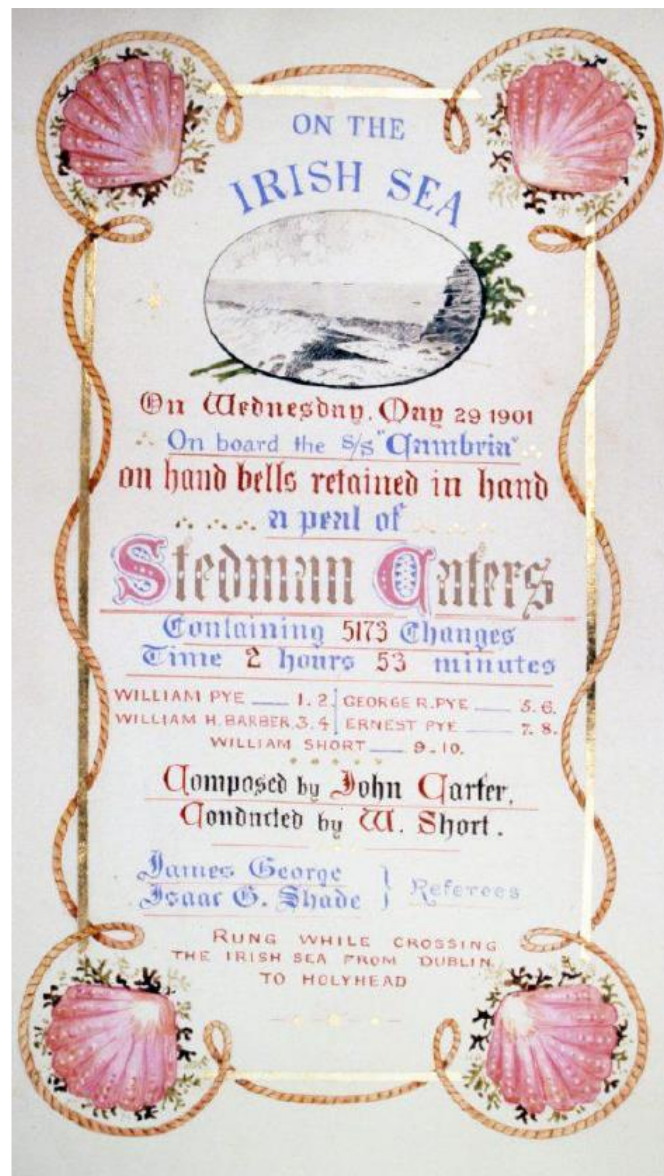 ON THE
IRISH SEA
On Wednesday, May 29 1901
On board the S/S "Cambria"
on hand bells retained in hand
a peal of
Stedman Caters
Containing 5173 Changes
Time 2 hours 53 minutes
WILLIAM PYE — 1. 2. GEORGE R. PYE — 5. 6.
WILLIAM H. BARBER. 3. 4 ERNEST PYE — 7. 8.
WILLIAM SHORT — 9-10.
Composed by John Carter,
Conducted by W. Short.
James George
Isaac G. Shade } Referees
RUNG WHILE CROSSING
THE IRISH SEA FROM DUBLIN
TO HOLYHEAD